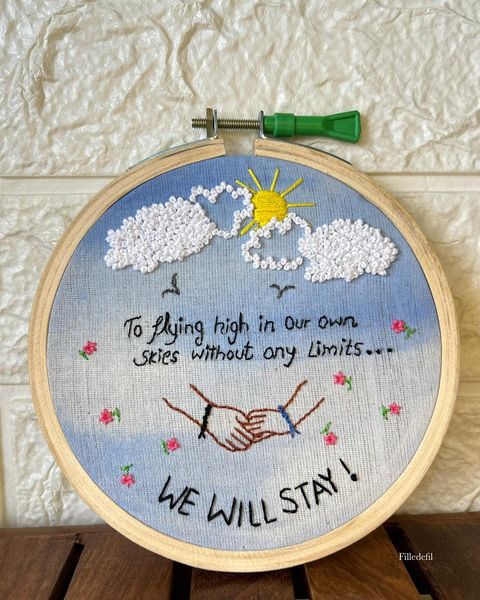 To flying high in our own
skies without any Limits...
WE WILL STAY!
Filledefil